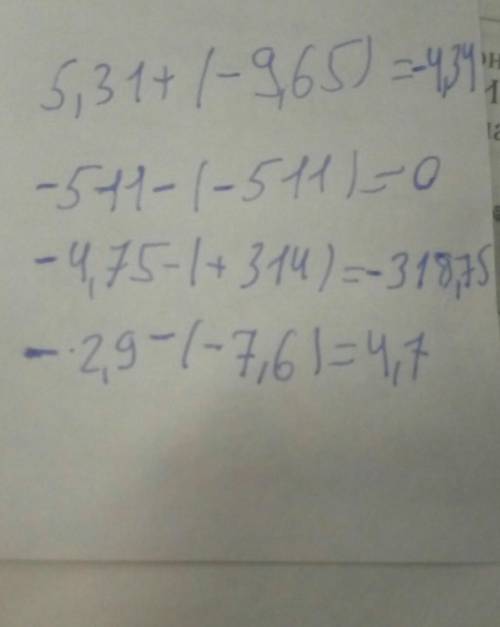 5,31+(-9,65)=-4,34
-511-(-511)=-0
-4,75-(+314)=-318,75
-2,9-(-7,6)=4,7